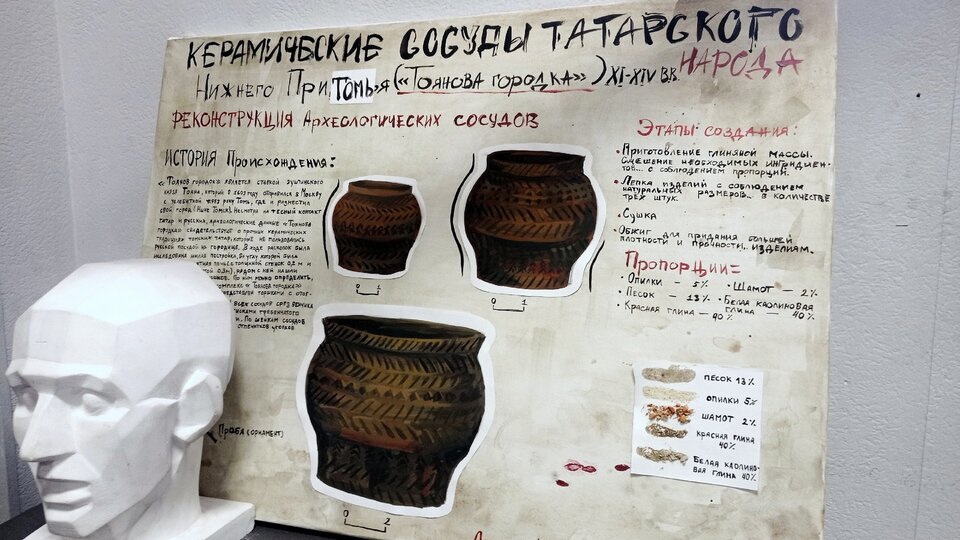 КЕРАМИЧЕСКИЕ СОСУДЫ ТАТАРСКОГО
НАРОДА
Нижнего ПриТомь-я («Тоянова городка») XI-XIV в.в.
РЕКОНСТРУКЦИЯ Археологических сосудов
ИСТОРИЯ Происхождения:
«Тоянов городок» является ставкой эуштинского
князя Тояна, который в 1603 году обратился в Москву
с челобитной через реку Томь, где и разместил
свой город (ныне Томск). Несмотря на тесный контакт
татар и русских, археологические данные «Тоянова
городка» свидетельствуют о прочных керамических
традициях томских татар, которые не пользовались
русской посудой на городище. В ходе раскопок была
исследована жилая постройка, в углу которой была
толщиной стенок 0,2 м и
рядом с ней нашли
По ним можно определить,
«Тоянова городка»
горшками с отог-
всех сосудов срез венчика
гребенчатого
и. По шейкам сосудов
отпечатков уголков
Проба (орнамент)
0 1
0 1
0 2
Этапы создания:
• Приготовление глиняной массы.
Смешение необходимых ингридиен-
тов... с соблюдением пропорций.
• Лепка изделий с соблюдением
натуральных размеров... в количестве
трёх штук.
• Сушка
• Обжиг для придания большей
плотности и прочности, изделиям.
Пропорции=
• Опилки — 5% • Шамот — 2%
• Песок — 13% • Белая каолиновая
глина — 40%
• Красная глина — 40%
ПЕСОК 13%
ОПИЛКИ 5%
ШАМОТ 2%
КРАСНАЯ ГЛИНА
40%
БЕЛАЯ КАОЛИНО-
ВАЯ ГЛИНА 40%